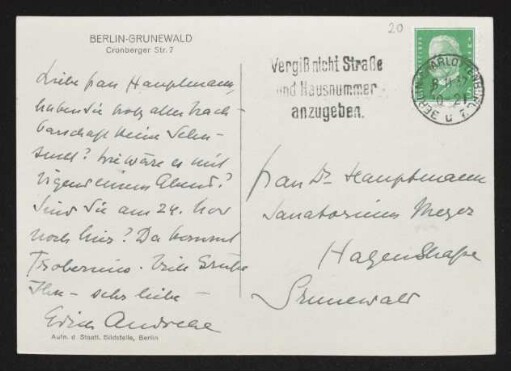 20
BERLIN-GRUNEWALD
Cronberger Str. 7
Liebe Frau Hauptmann,
haben Sie trotz aller Nach-
barschaft keine Sehn-
sucht? Wie wäre es mit
irgend einem Abend?
Sind Sie am 24. Nov
noch hier? Da kommt
Frobenius. Viele Grüße
Ihr – sehr liebe –
Edith Andreae
Aufn. d. Staatl. Bildstelle, Berlin
Vergiß nicht Straße
und Hausnummer
anzugeben.
BERLIN-CHARLOTTENBURG
Frau Dr. Hauptmann
Sanatorium Meyer
Hagenstraße
Grunewald